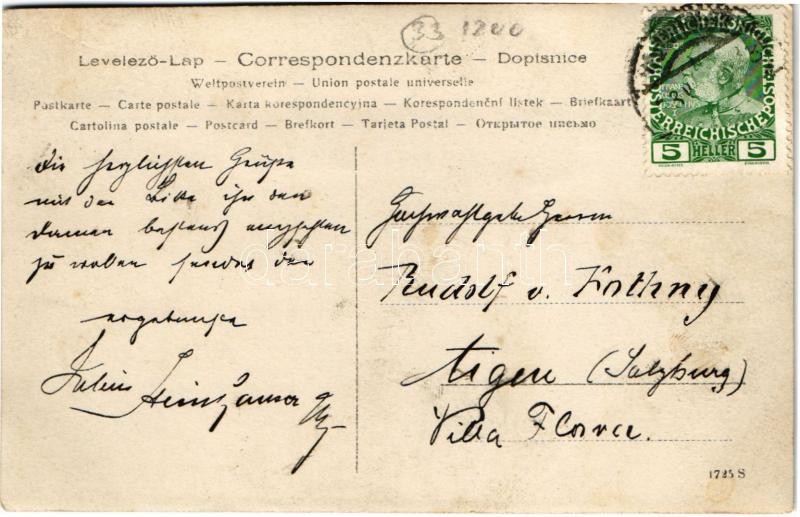 33 1200
Levelező-Lap – Correspondenzkarte – Dopisnice
Weltpostverein – Union postale universelle
Postkarte – Carte postale – Karta korespondencyjna – Korespondenční lístek – Briefkaart
Cartolina postale – Postcard – Brefkort – Tarjeta Postal – Открытое письмо
5 HELLER 5
die herzlichsten Grüße
mit der Bitte ihn den
Damen bestens empfehlen
zu wollen sendet der
ergebenste
Julius
Hochwohlgeb Herrn
Rudolf v.
Aigen (Salzburg)
Villa Flora.
1725 S
darabanth